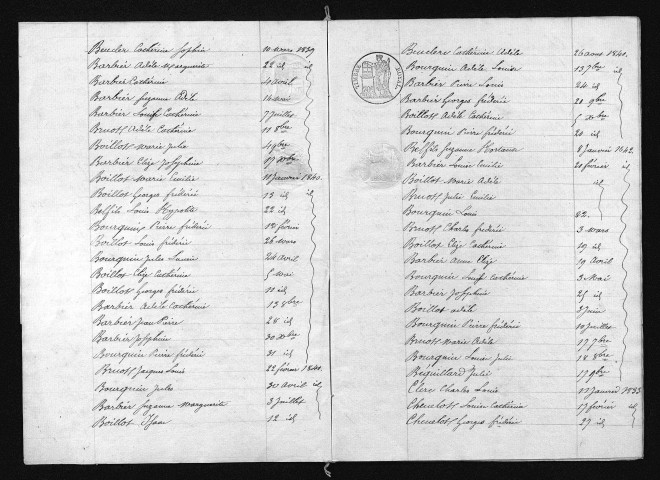 Beucler Catherine Sophie 10 mars 1839
Barbier Adèle Marguerite 22 id id
Barbier Catherine 4 avril
Barbier Suzanne Adèle 16 mai
Barbier Louise Catherine 7 juillet
Bruots Adèle Catherine 11 8bre
Boillot Marie Julie 4 9bre
Barbier Elize Joséphine 17 Xbre
Boillot Marie Emilie 10 janvier 1840
Boillot Georges frédéric 13 id id
Louis 22 id
Bourquin Pierre frédéric 12 février
Boillot Louis frédéric 26 mars
Bourquin Jules Lucien 24 avril
Boillot Elize Catherine 5 mai
Boillot Georges frédéric 11 id
Barbier Adèle Catherine 13 8bre
Barbier Jean Pierre 28 id
Barbier Joséphine 30 Xbre
Bourquin Pierre frédéric 31 id
Bruots Jacques Louis 22 février 1841
Bourquin Jules 30 avril id
Barbier Suzanne Marguerite 3 juillet
Boillot 12 id
Beucler Catherine Adèle 26 aout 1841
Bourquin Adèle Louise 13 7bre id
Barbier Pierre Louis 24 id
Barbier Georges frédéric 21 9bre
Boillot Adèle Catherine 5 Xbre
Bourquin Pierre frédéric 20 id
Suzanne 8 janvier 1842
Barbier Louise Emilie 20 février id
Boillot Marie Adèle id
Bruots Julie Emilie
Bourquin Louis 22
Bruots Charles frédéric 3 mars
Boillot Elize Catherine 19 id
Barbier Anne Elize 19 avril
Bourquin Louise Catherine 3 Mai
Barbier Joséphine 25 id
Boillot Adèle 2 juin
Bourquin Pierre frédéric 10 juillet
Bruots Marie Adèle 17 7bre
Bourquin Louise Julie 18 8bre
Beguillard Julie 17 9bre
Clerc Charles Louis 11 janvier 1833
Louise Catherine 17 février id
Georges frédéric 27 id